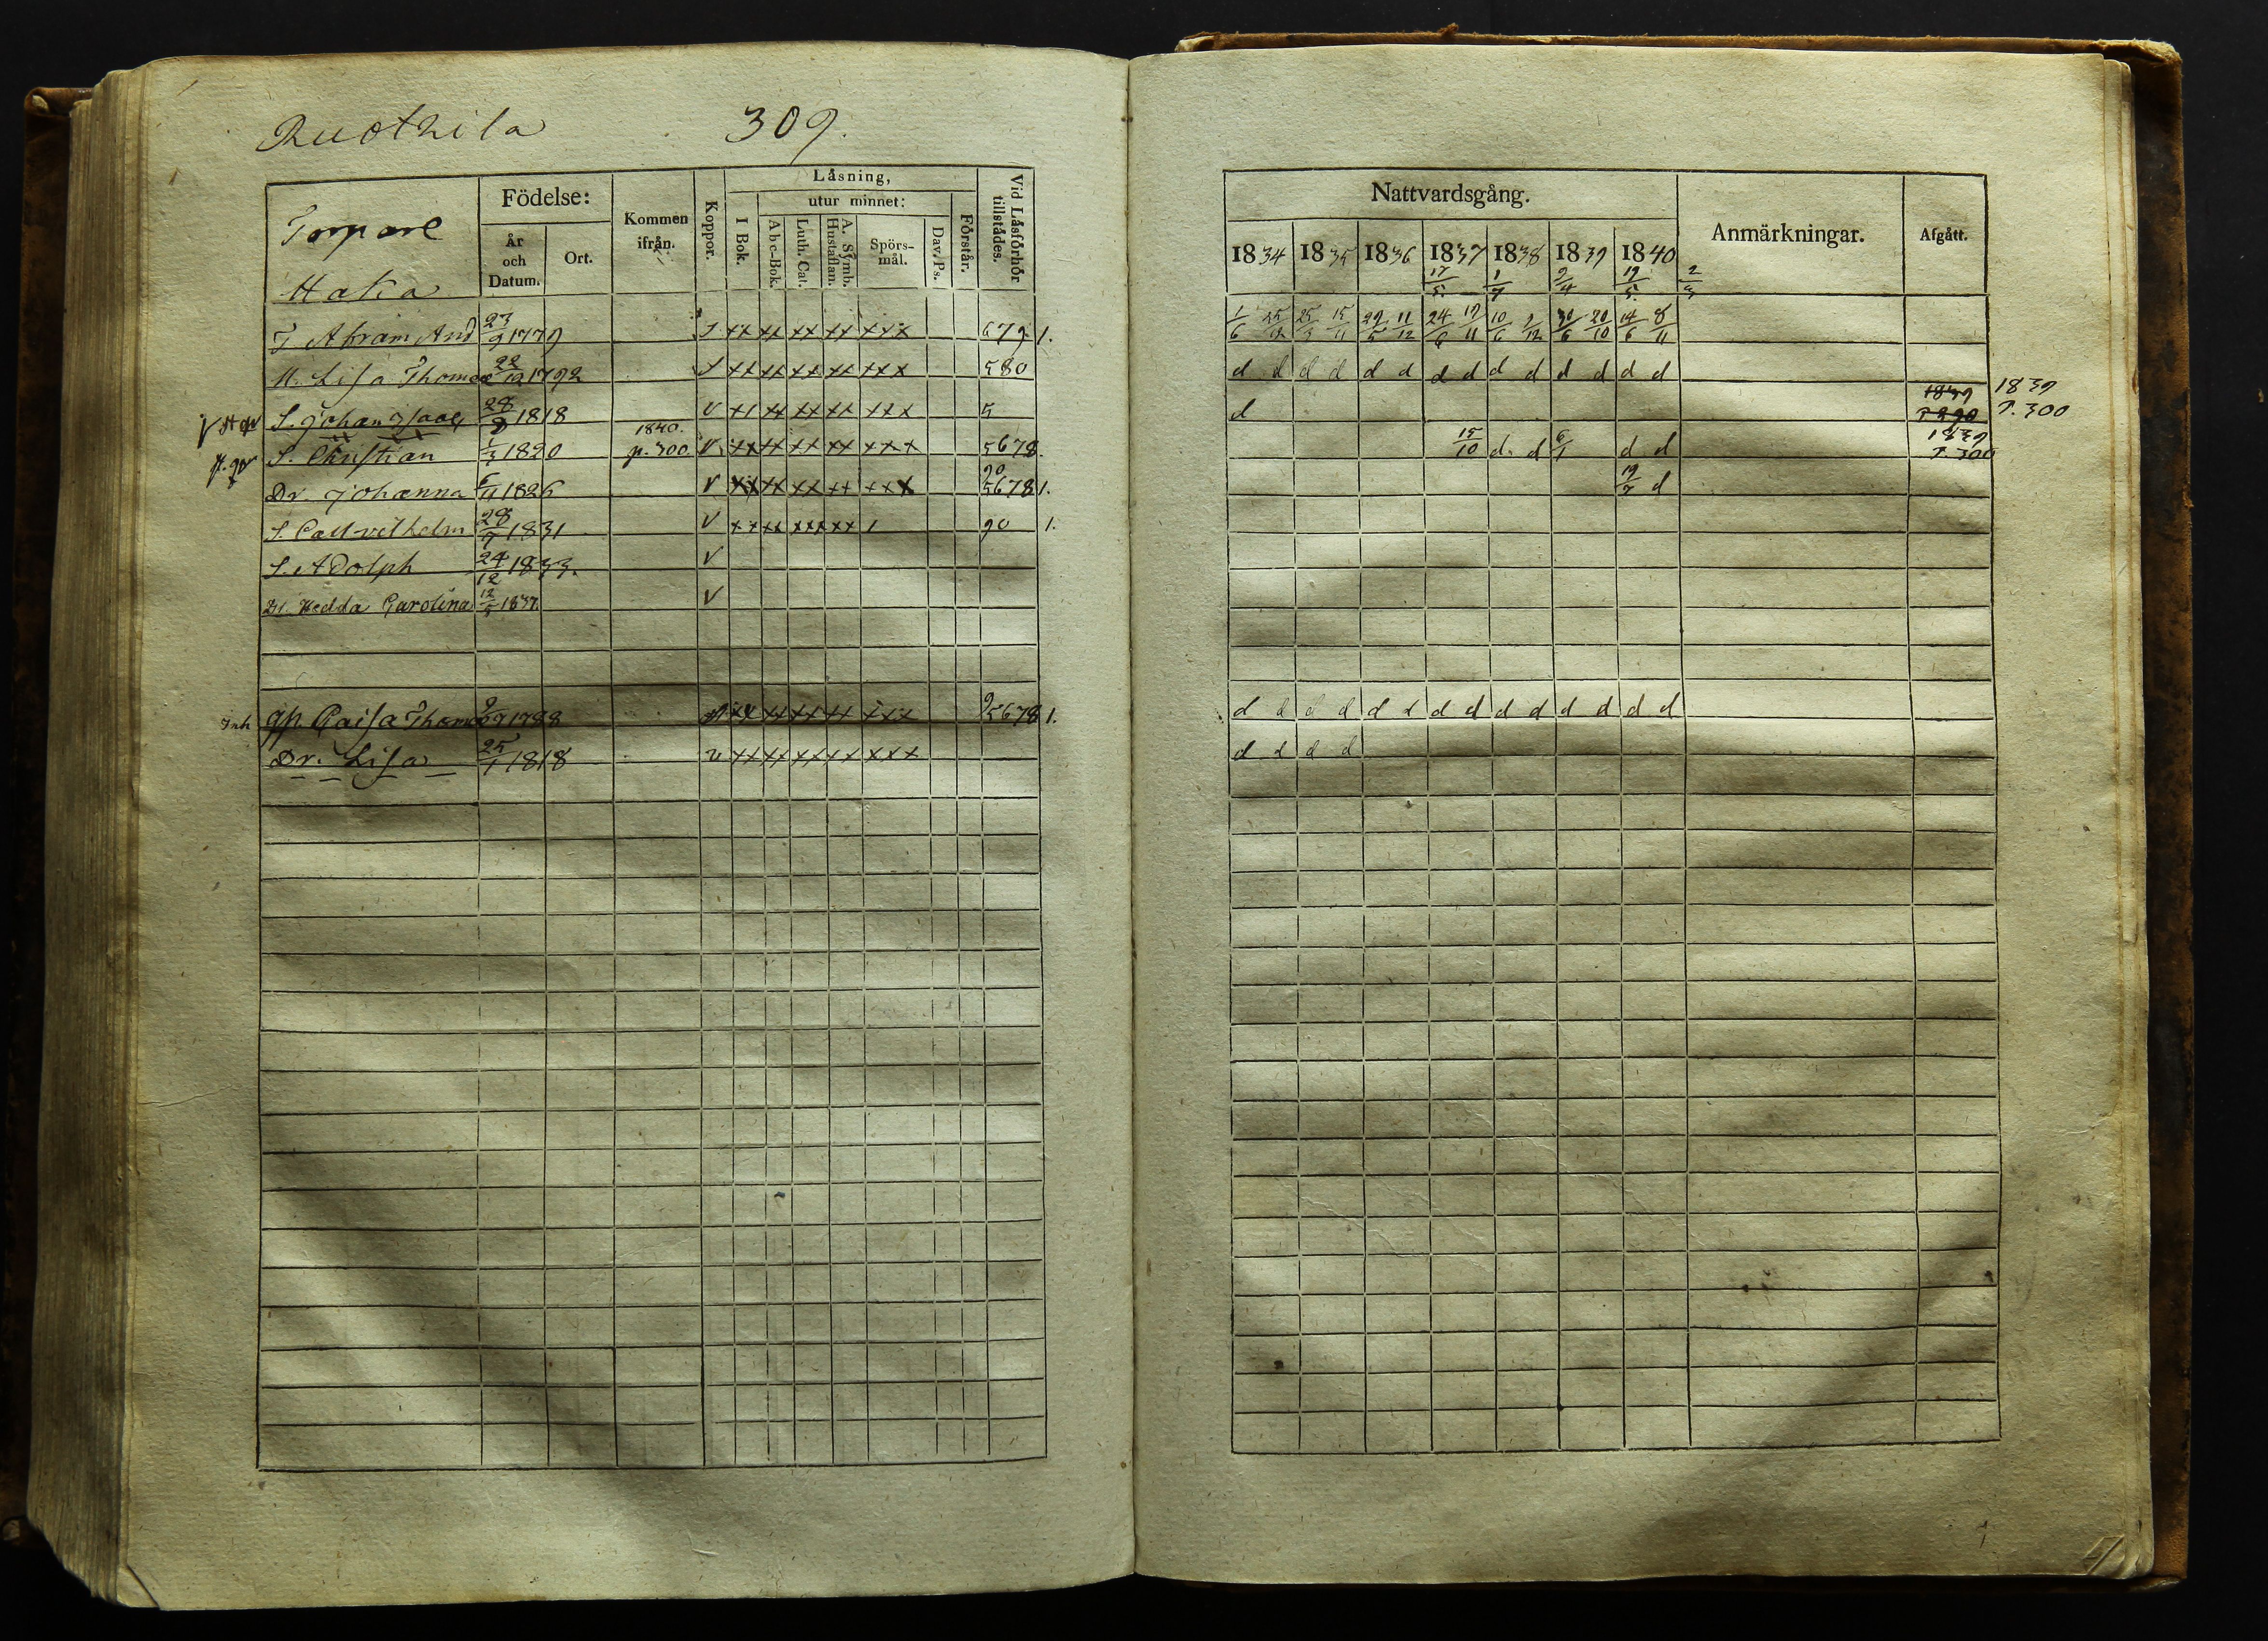 Ruotzila 309.
Torpare
Haka
Födelse:
År och Datum.
Ort.
Kommen ifrån.
Koppor.
Låsning,
utur minnet:
I Bok.
Abc-Bok.
Luth. Cat.
A. Symb. Hustaflan.
Spörs-mål.
Dav. Ps.
Förstår.
Vid Låsförhör tillstådes.
T Abram And 23/9 1779 S xx xx xx xx xxx 679 1.
H. Lisa Thomae 22/12 1792 S xx xx xx xx xxx 580
S. Johan Isaac 28/8 1818 v x1 xx xx xx xxx 5
S. Christian 1/3 1820 1840. p. 300 v xx xx xx xx xxx 5678.
Dr. Johanna 6/11 1826 v xx xx xx xx xxx 90 5678 1.
S. Carl wilhelm 28/7 1831 v xx xx xxx xx 1 90 1.
S. Adolph 24/12 1833. v
Dr. Hedda Carolina 12/5 1837. v
Inh gp. Caisa Thomae 9/9 1788 xx xx xx xx xxx 9 5678 1.
Dr. Lisa 25/1 1818 v xx xx xx xx xxx
Nattvardsgång.
Anmärkningar.
Afgått.
1834 1835 1836 1837 1838 1839 1840
17/5 1/7 9/4 19/5 2/3
1/6 25/12 25/3 15/11 29/5 11/12 24/6 19/11 10/6 9/12 30/6 20/10 14/6 8/11
d d d d d d d d d d d d d d
d 1839 p 290 1839 p. 300
15/10 d. d 6/1 d d 1839 p. 300
19/7 d
d d d d d d d d d d d d d d
d d d d